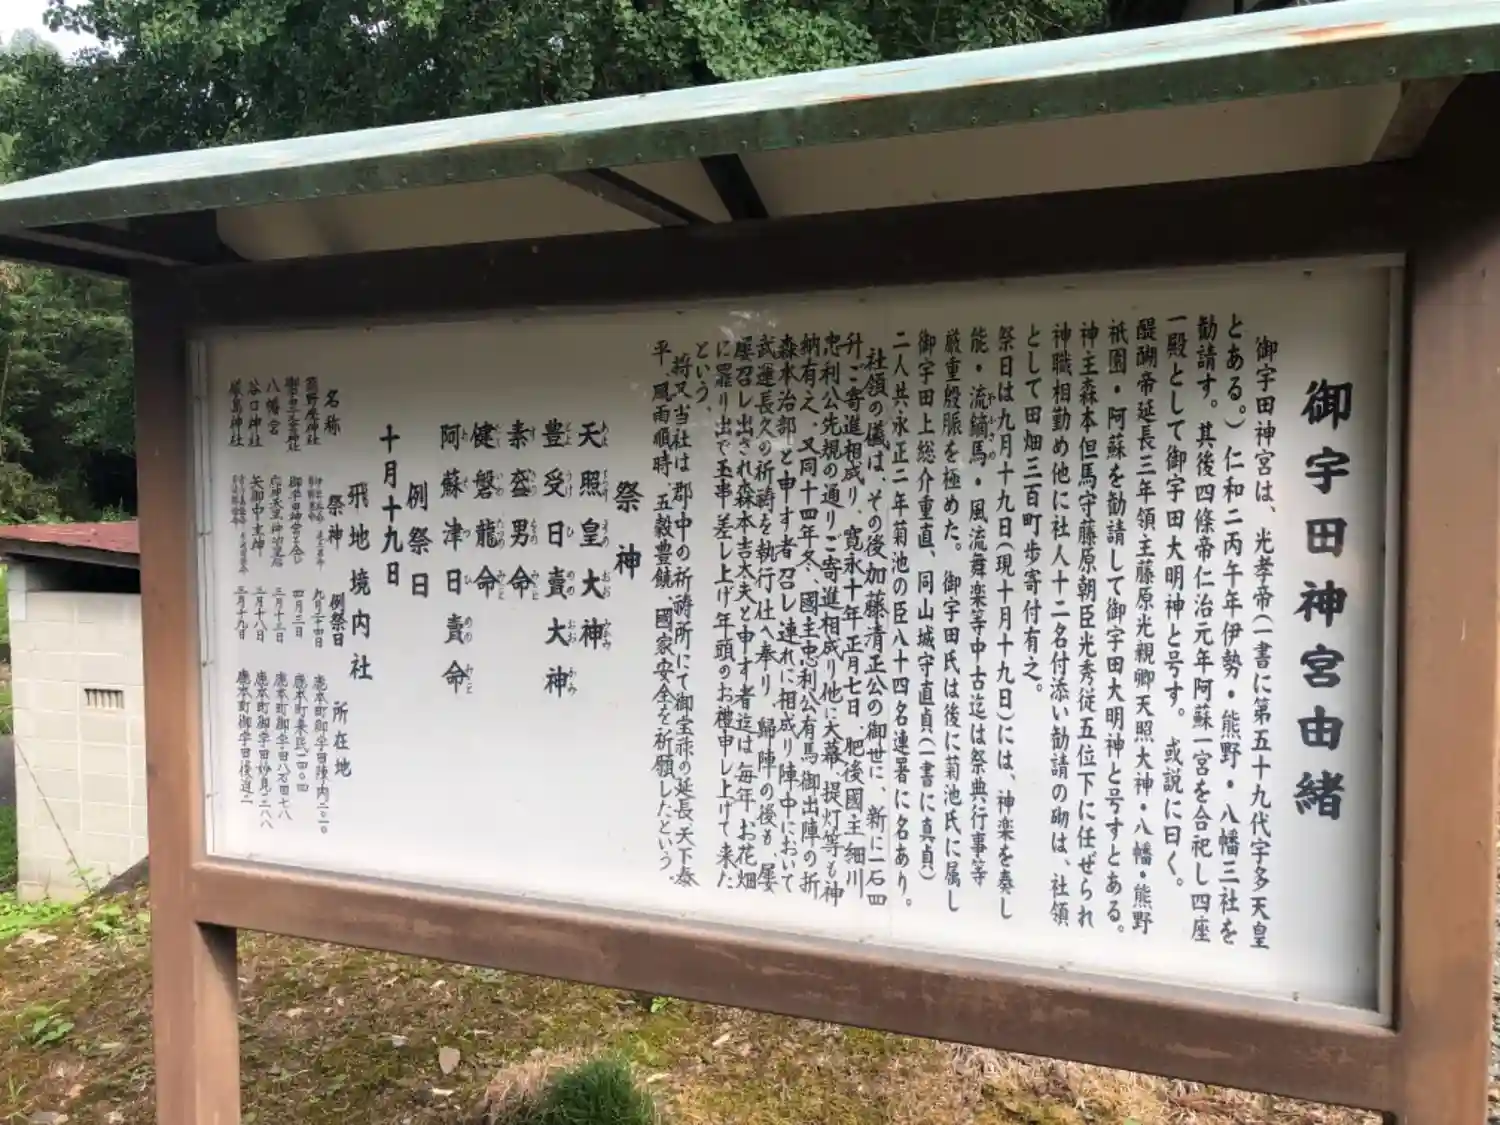 御宇田神宮由緒
御宇田神宮は、光孝帝(一書に第五十九代宇多天皇
とある。)仁和二丙午年伊勢・熊野・八幡三社を
勧請す。其後四條帝仁治元年阿蘇一宮を合祀し四座
一殿として御宇田大明神と号す。或説に曰く。
醍醐帝延長三年領主藤原光親卿天照大神・八幡・熊野
祇園・阿蘇を勧請して御宇田大明神と号すとある。
神主森本但馬守藤原朝臣光秀従五位下に任ぜられ
神職相勤め他に社人十二名付添い勧請の砌は、社領
として田畑三百町歩寄付有之。
祭日は九月十九日(現十月十九日)には、神楽を奏し
能・流鏑馬・風流舞楽等中古迄は祭典行事等
厳重殷賑を極めた。御宇田氏は後に菊池氏に属し
御宇田上総介重直、同山城守直貞(一書に真貞)
二人共永正二年菊池の臣八十四名連署に名あり。
社領の儀は、その後加藤清正公の御世に、新に一石四
升ご寄進相成り、寛永十年正月七日、肥後國主細川
忠利公先規の通りご寄進相成り他に大幕、提灯等も神
納有之、又同十四年冬、國主忠利公有馬御出陣の折
森本治部と申す者召し連れに相成り陣中において
武運長久の祈祷を執行仕へ奉り、歸陣の後も、屡
屡召し出され森本吉太夫と申す者迄は毎年、お花畑
に罷り出で玉串差し上げ年頭のお禮申し上げて来た
という。
将又当社は郡中の祈祷所にて御宝祚の延長天下泰
平、風雨順時、五穀豊饒、國家安全を祈願したという。
祭神
天照皇大神
豊受日賣大神
素盞男命
健磐龍命
阿蘇津日賣命
例祭日
十月十九日
飛地境内社
名称 祭神 例祭日 所在地
八幡宮 三月十五日 鹿本町御宇田八石四七八
谷口神社 矢御中主神 三月十八日 鹿本町御宇田妙見二八八
厳島神社 三月十九日 鹿本町御宇田後迫二